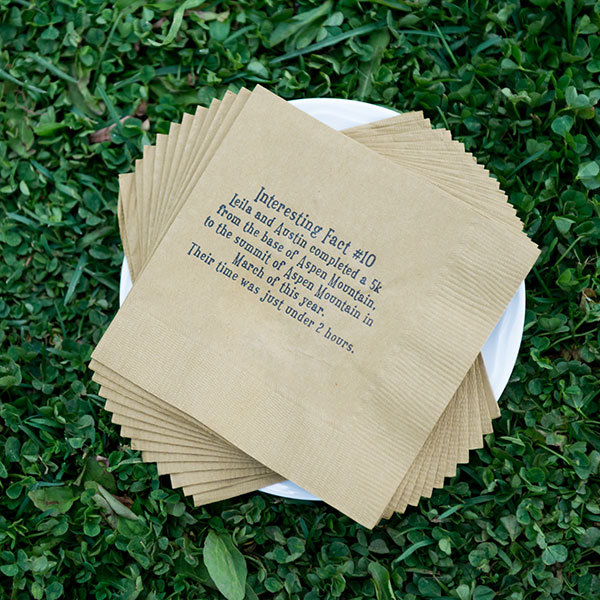 Interesting Fact #10
Leila and Austin completed a 5k
from the base of Aspen Mountain,
to the summit of Aspen Mountain in
March of this year.
Their time was just under 2 hours.